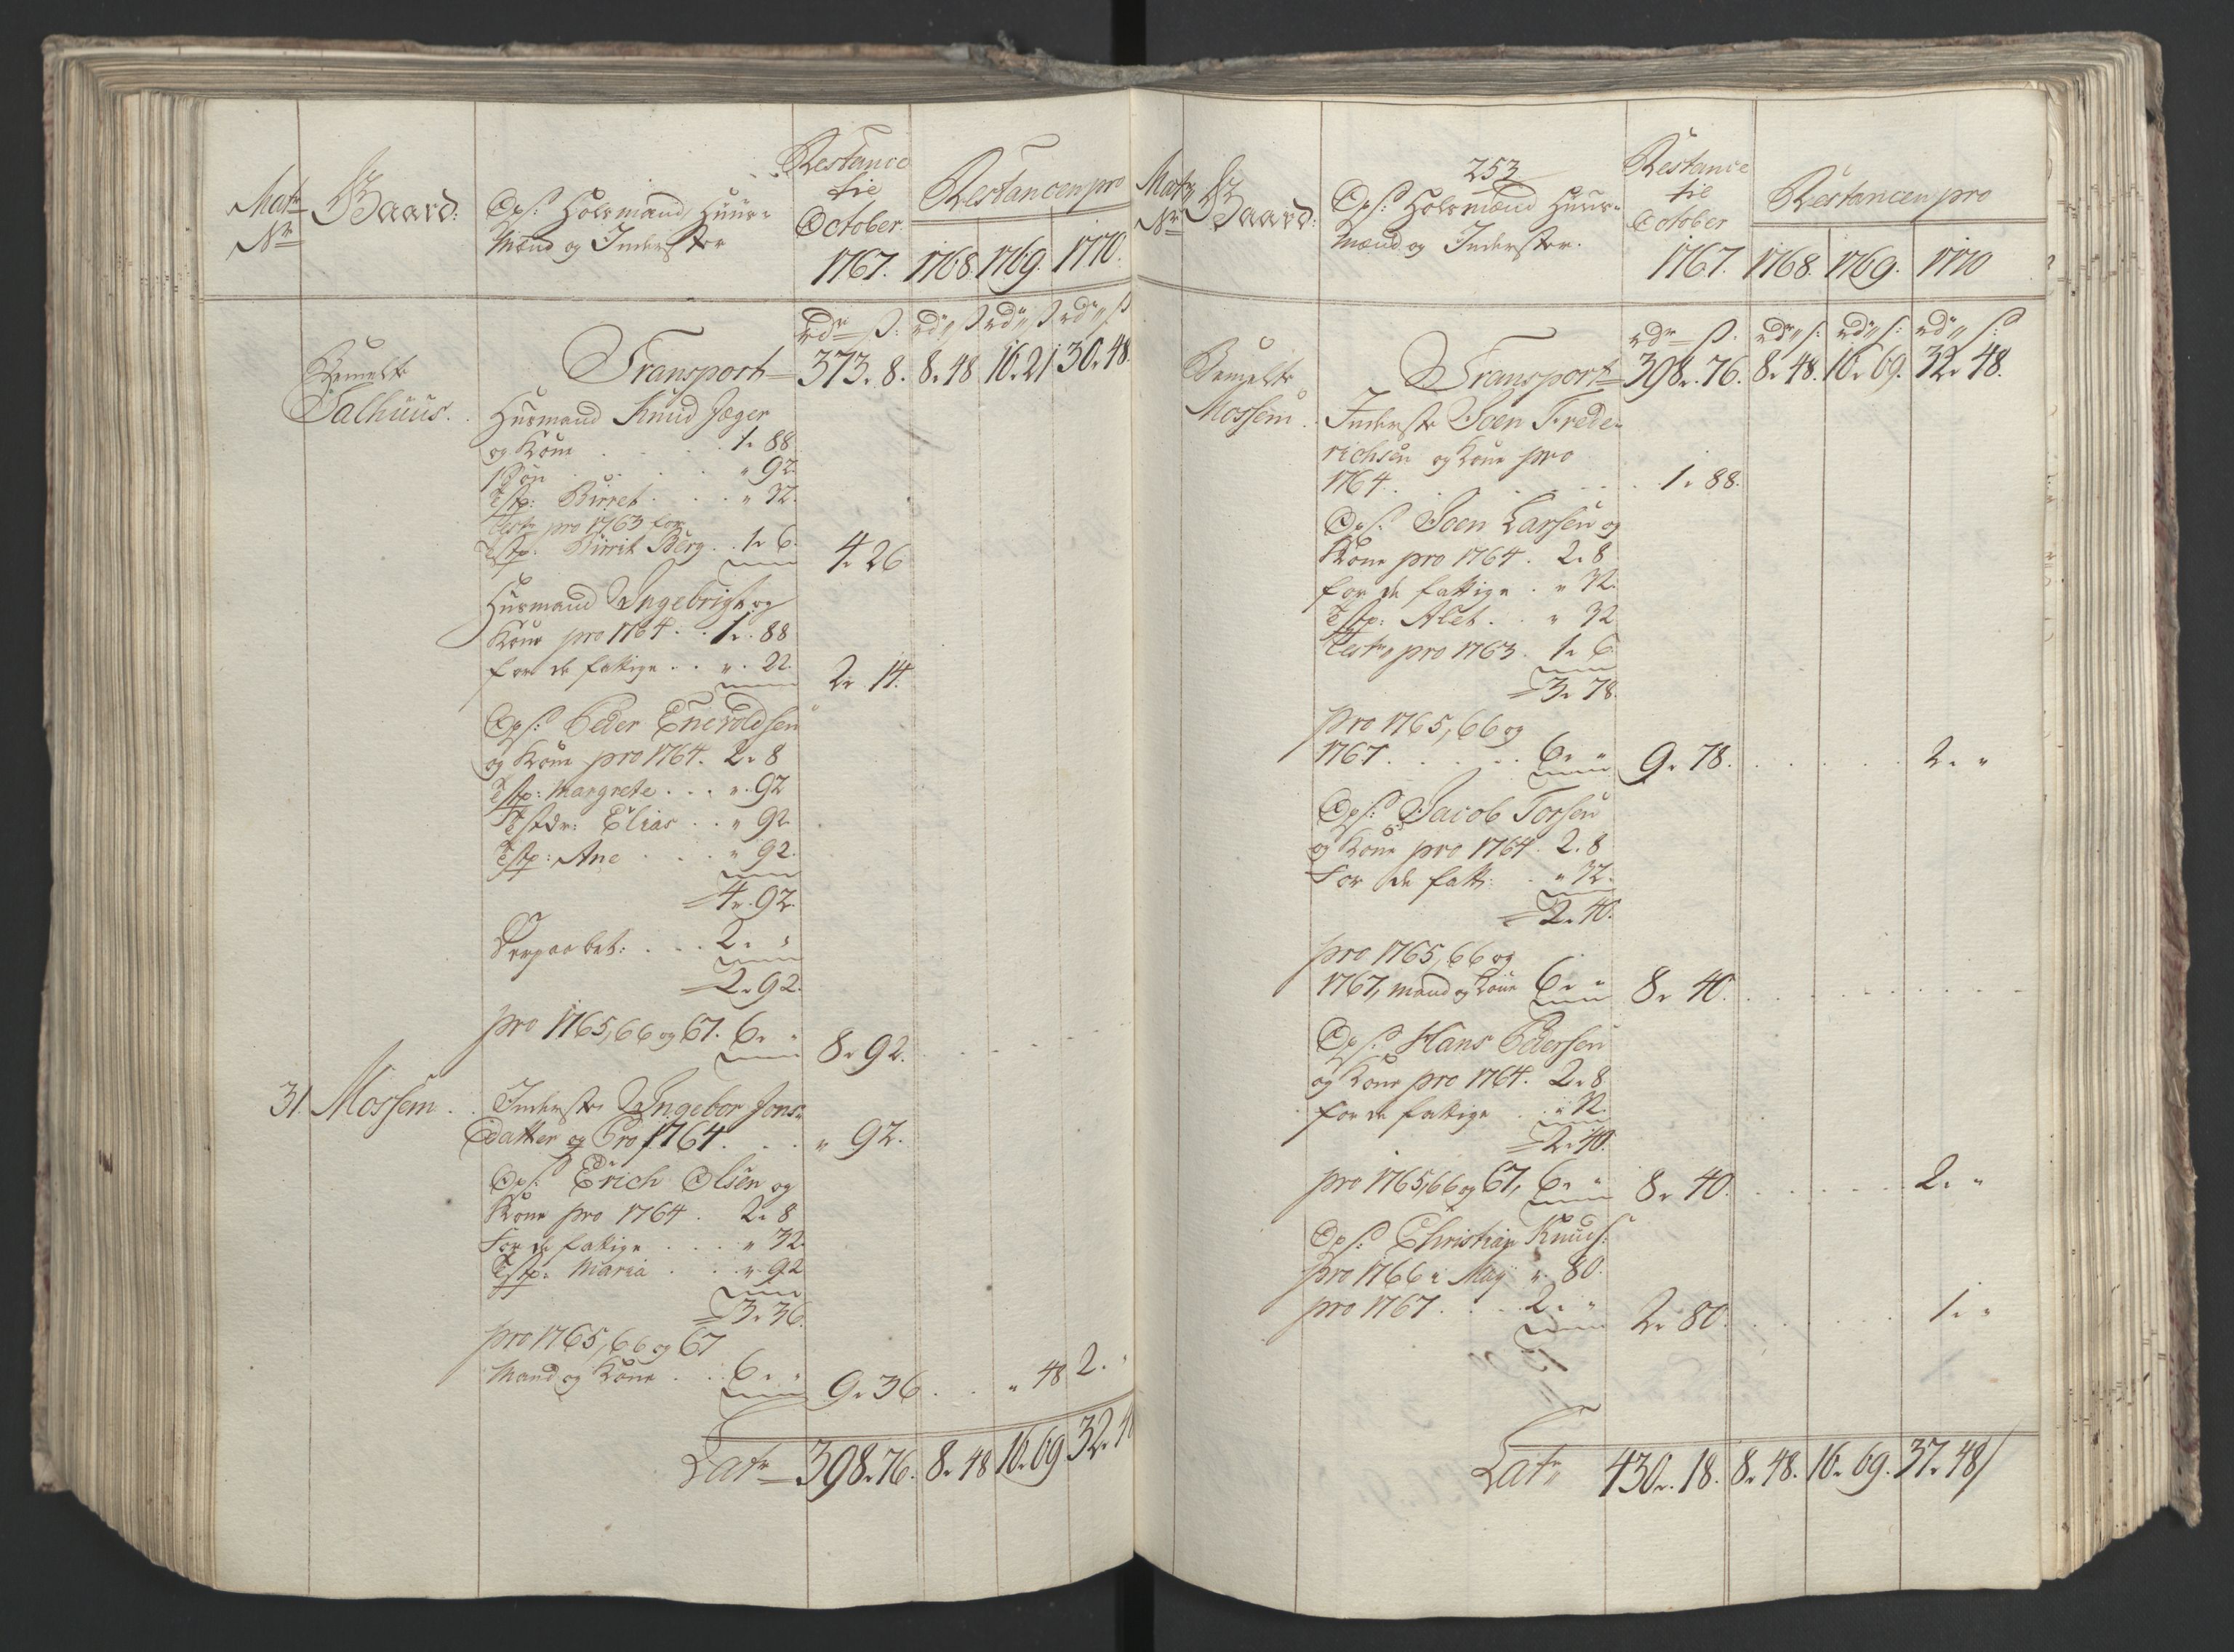 Matr Nr
Gaard:
Ops: Holsmænd, Huus-
mænd og Inderster
Restance
til
October
1767.
Restancen pro
1768. 1769. 1770.
rdr ß: rdr ß rdr ß rdr ß
Bemelte
Salhuus.
Transport 373. 8. 8. 48 16. 21 30. 48.
Husmand Knud Jæger
og Kone . . . 1. 88
1 Søn . . . " 92.
Tstp: Birret . . . " 32.
Rest pro 1763 for
Tstp: Birrit Berg . . 1. 6. 4. 26
Husmand Ingebrigt og
Kone pro 1764 . . 1. 88
for de fattige . . ". 22. 2. 14.
Ops: Peder Enevoldsen
og Kone pro 1764. 2. 8
Tstp: Margrete . . . ". 92
Tstdr: Elias . . " 92.
Tstp: Ane . . . " 92.
4. 92.
Derpaa bet: . . . 2. "
2. 92.
pro 1765, 66 og 67. 6. " 8. 92.
31. Mossem . . Inderste Ingebor Jons-
datter og Pro 1764 . . . " 92.
Ops: Erich Olsen og
Kone pro 1764 . 2. 8
For de fattige . . . " 32.
Tstp: Maria . . ". 92
3. 36.
pro 1765, 66 og 67
Mand og Kone . . 6. " 9. 36 . . " 48 2. "
Latr 398. 76. 8. 48 16. 69 32. 4
Matr Nr
Gaard:
253
Ops: Holsmænd Huus-
mænd og Inderster.
Restance
til
October
1767.
Restancen pro
1768. 1769. 1770
rdr ß. rdr ß: rdr ß: rdr ß:
Bemelte
Mossem.
Transport 398. 76. 8. 48. 16. 69. 32. 48.
Inderste Joen Frede-
richsen og Kone pro
1764 . . . 1. 88.
Ops: Joen Larsen og
Kone pro 1764. 2. 8
for de fattige . " 32.
Tstp: Alet . . " 32
Rest pro 1763. 1. 6
3. 78.
pro 1765, 66 og
1767 . . . . . 6. " 9. 78. . . . . . 2. "
Ops: Jacob Torsen
og Kone pro 1764. 2. 8
For de fatt: . " 32.
2. 40.
pro 1765, 66 og
1767, mand og Kone 6. " 8. 40. . . . . .
Ops: Hans Pedersen
og Kone pro 1764. 2. 8
for de fattige . . " 32.
2. 40.
pro 1765, 66 og 67, 6. " 8. 40. . . . . . 2. "
Ops: Christian Knuds:
pro 1766 i May ". 80.
pro 1767 . . . 2. " 2. 80. . . . . . 1. "
Latr 430. 18. 8. 48. 16. 69. 37. 48